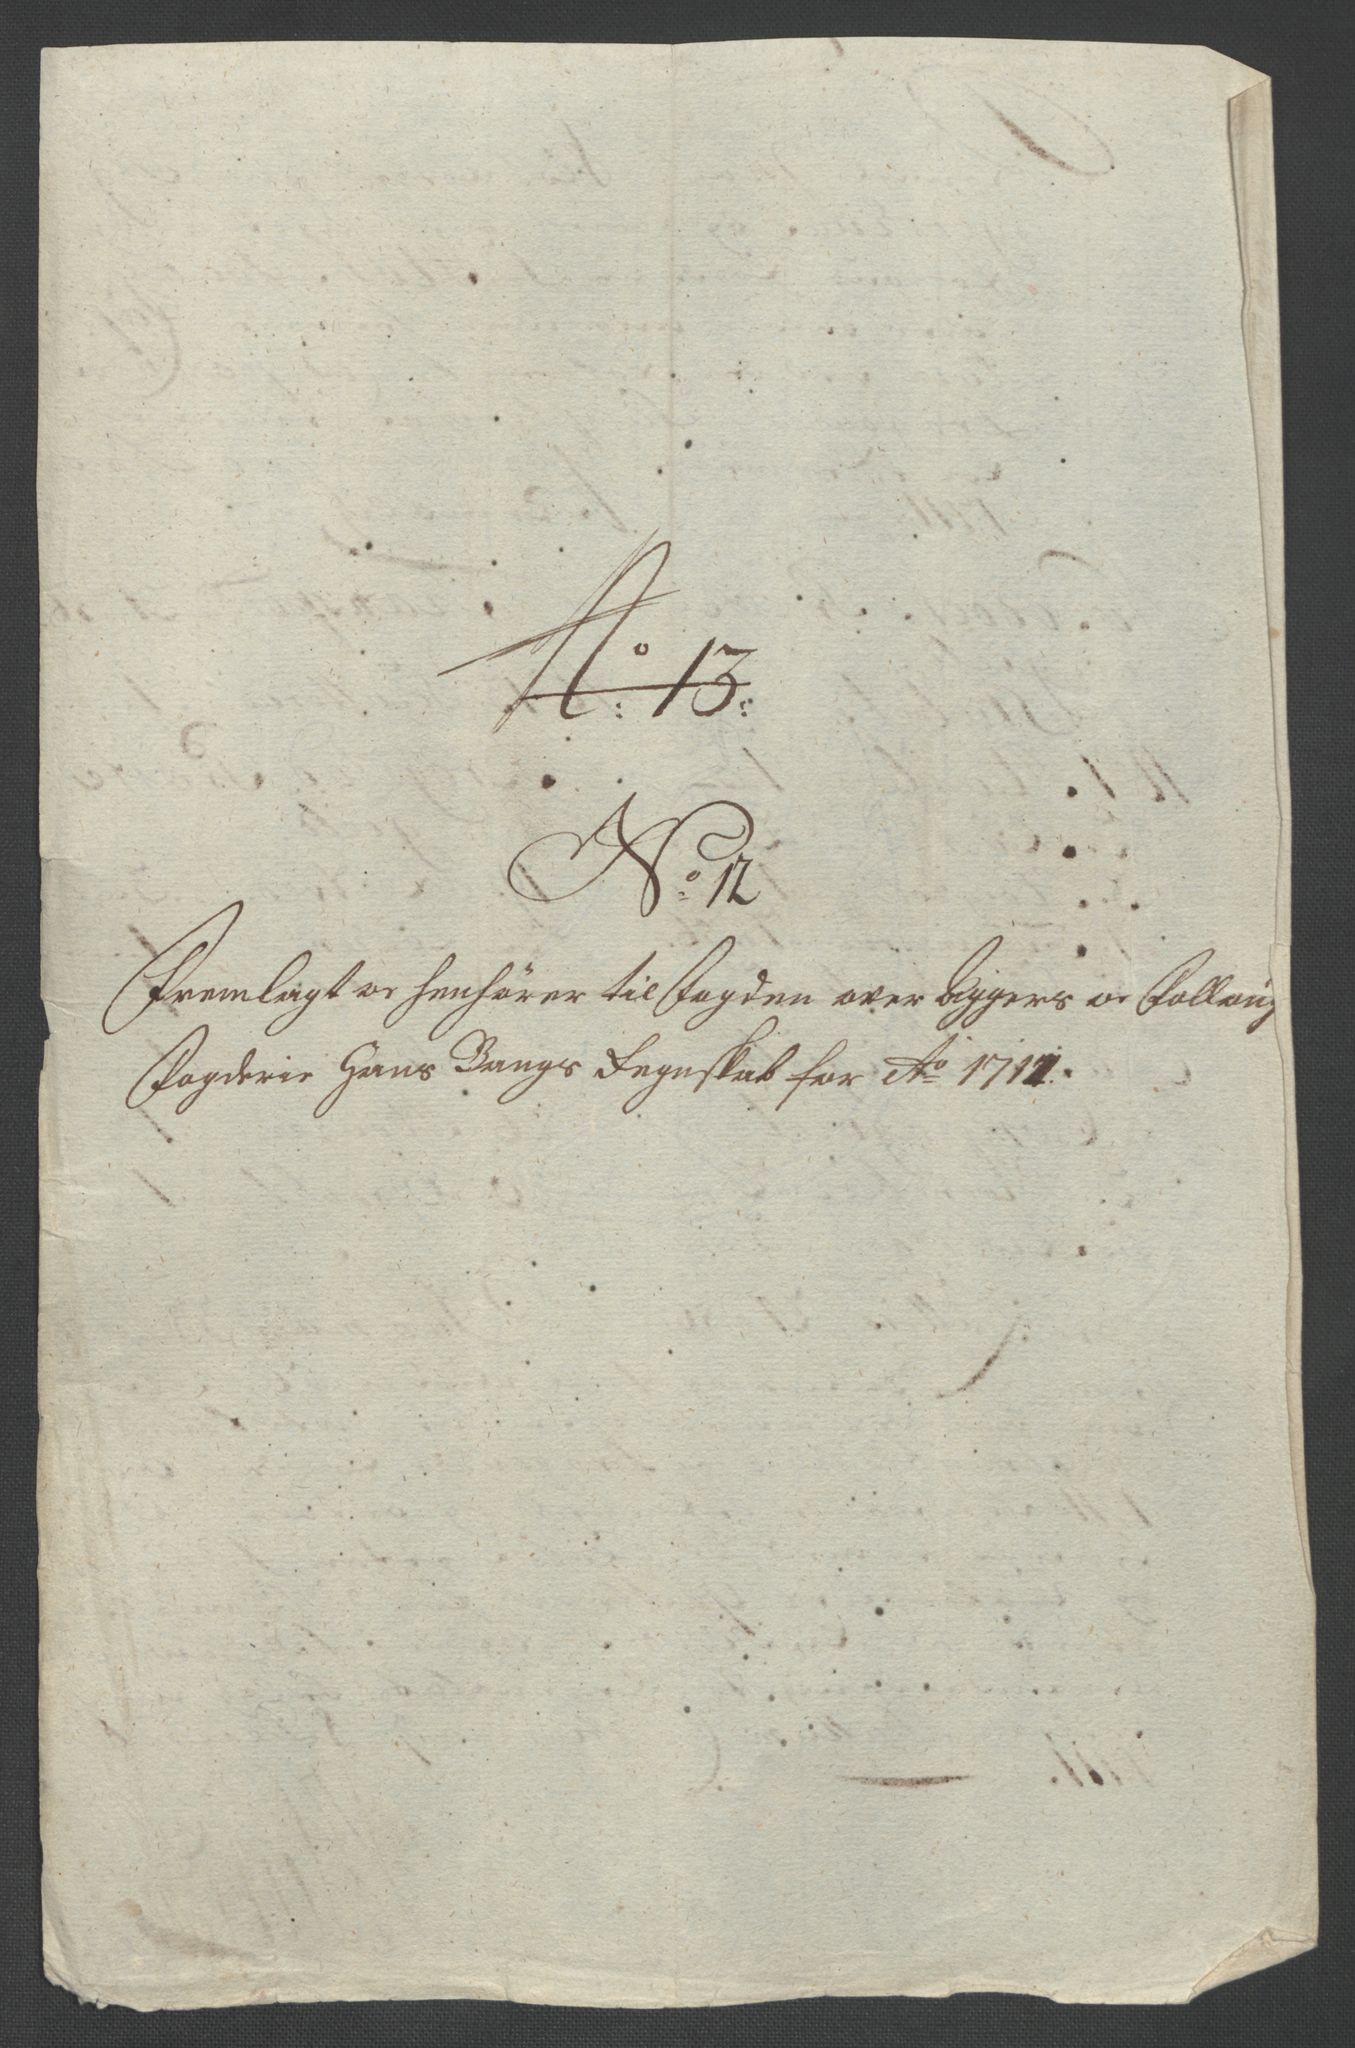 No: 13:
No: 12
Fremlagt oc henhörer til fogden over Aggers oc Folloug
Fogderie Hans Bangs Regnskab for Ao 1711.